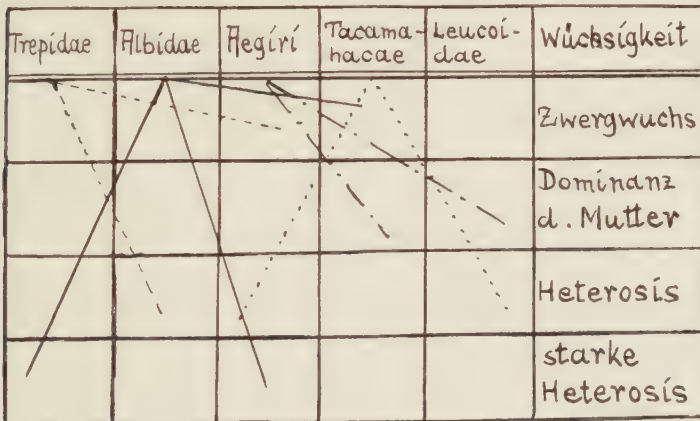 Trepidae Albidae Aegiri Tacama- Leucoi- Wüchsigkeit
hacae dae
Zwergwuchs
Dominanz
d. Mutter
Heterosis
starke
Heterosis